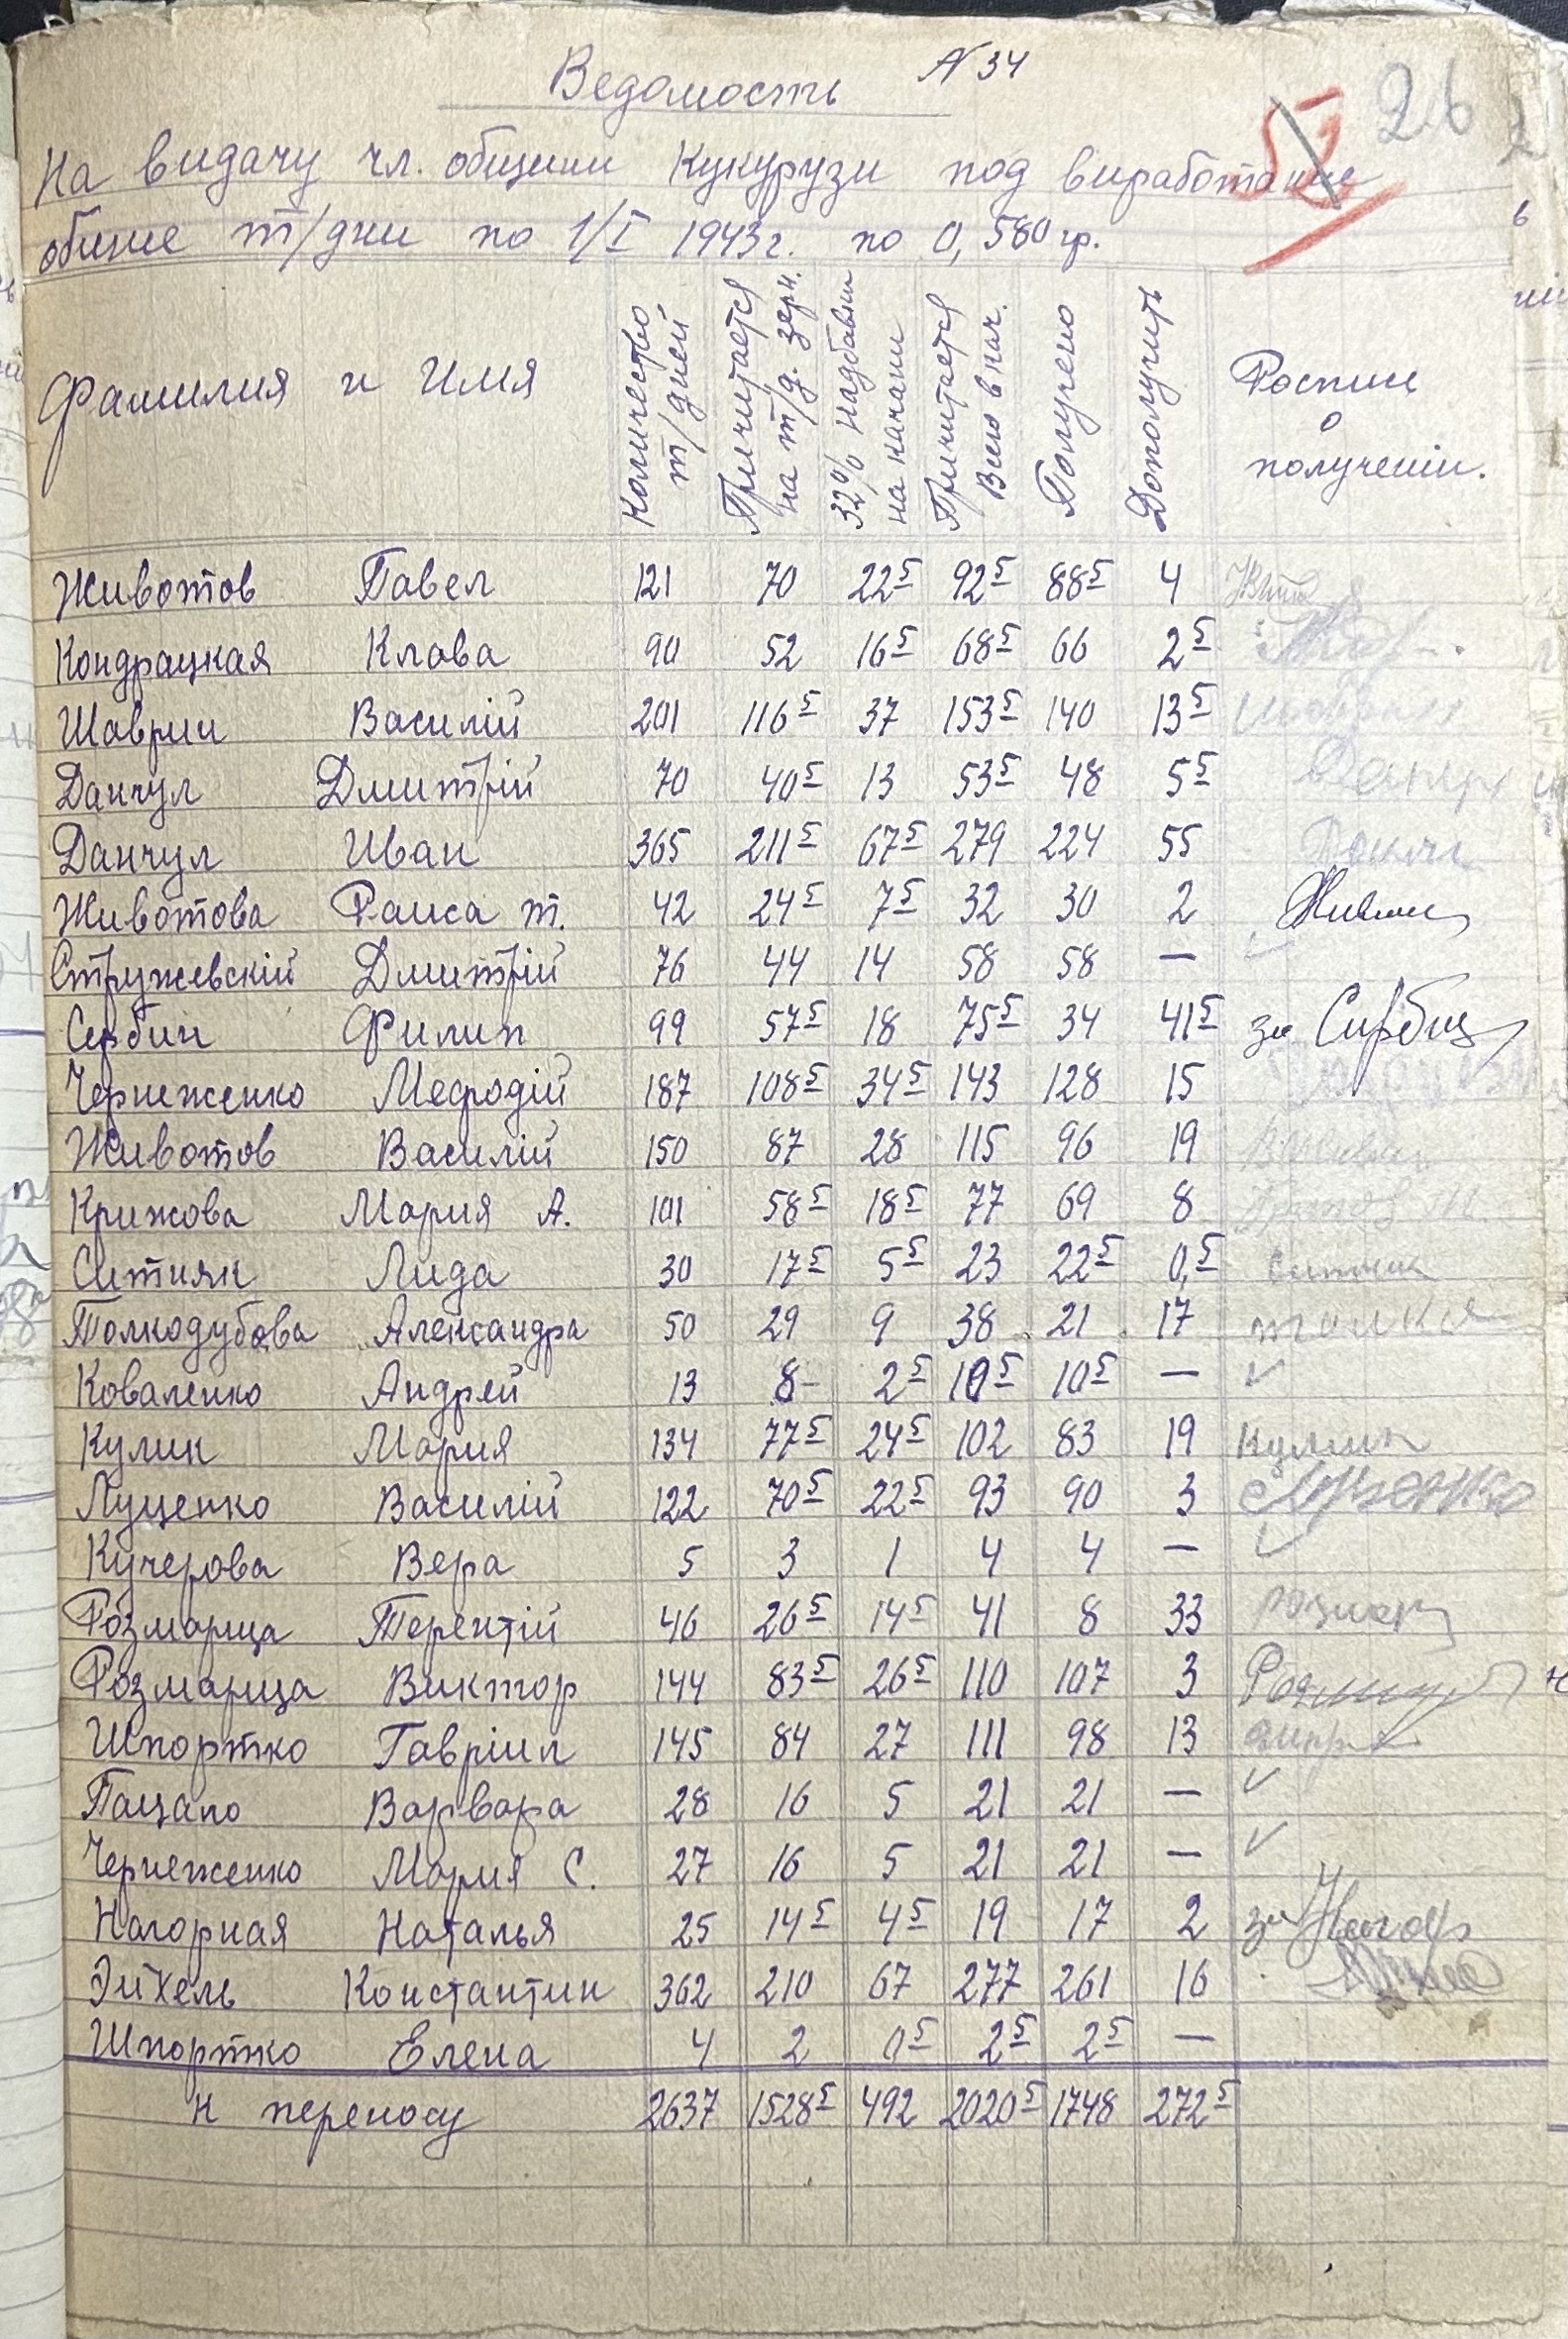 Ведомость N 34
26
На видачу чл. общини Кукурузи под виработание
обшие т/дни по 1/I 1943 г. по 0,580 гр.
Фамилия и Имя Количество т/дней Причитается на т/д. зерн. 32% надбавки на качани Причитается Всего в кач. Получено Дополучить Роспис о получении.
Животов Павел 121 70 22⁵ 92⁵ 88⁵ 4
Кондрацкая Клава 90 52 16⁵ 68⁵ 66 2⁵
Шаврин Василій 201 116⁵ 37 153⁵ 140 13⁵
Данчул Дмитрій 70 40⁵ 13 53⁵ 48 5⁵
Данчул Иван 365 211⁵ 67⁵ 279 224 55
Животова Раиса т. 42 24⁵ 7⁵ 32 30 2
Стружевскій Дмитрій 76 44 14 58 58 —
Сербин Филип 99 57⁵ 18 75⁵ 34 41⁵ за Сирбиц
Чернеженко Мефодій 187 108⁵ 34⁵ 143 128 15
Животов Василій 150 87 28 115 96 19
Крижова Мария А. 101 58⁵ 18⁵ 77 69 8
Ситник Лида 30 17⁵ 5⁵ 23 22⁵ 0,⁵ ситник
Толкодубова Александра 50 29 9 38 21 17
Коваленко Андрей 13 8- 2⁵ 10⁵ 10⁵ — ✓
Кулик Мария 134 77⁵ 24⁵ 102 83 19 Кулик
Луценко Василій 122 70⁵ 22⁵ 93 90 3
Кучерова Вера 5 3 1 4 4 — ✓
Розмарица Терентій 46 26⁵ 14⁵ 41 8 33
Розмарица Виктор 144 83⁵ 26⁵ 110 107 3
Шпортко Гавріил 145 84 27 111 98 13
Пацапо Варвара 28 16 5 21 21 — ✓
Чернеженко Мария С. 27 16 5 21 21 — ✓
Нагорная Наталья 25 14⁵ 4⁵ 19 17 2 за Нагор
Эйхель Константин 362 210 67 277 261 16
Шпортко Елена 4 2 0⁵ 2⁵ 2⁵ —
к переносу 2637 1528⁵ 492 2020⁵ 1748 272⁵